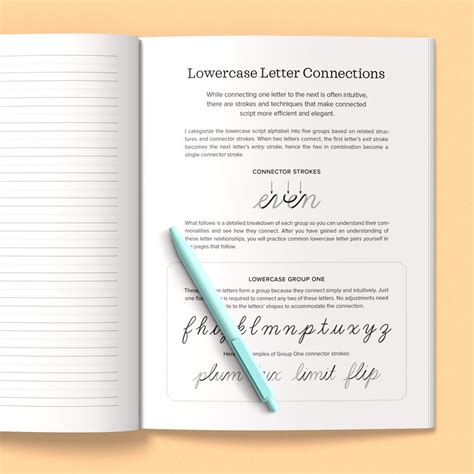 Lowercase Letter Connections
While connecting one letter to the next is often intuitive,
there are strokes and techniques that make connected
script more efficient and elegant.
I categorize the lowercase script alphabet into five groups based on related struc-
tures and connector strokes. When two letters connect, the first letter's exit stroke
becomes the next letter's entry stroke, hence the two in combination become a
single connector stroke.
CONNECTOR STROKES
even
What follows is a detailed breakdown of each group so you can understand their com-
monalities and see how they connect. After you have gained an understanding of
these letter relationships, you will practice common lowercase letter pairs yourself in
the pages that follow.
LOWERCASE GROUP ONE
These letters form a group because they connect simply and intuitively. Just
one is required to connect any two of these letters. No adjustments need
to the letters' shapes to accommodate the connection.
f h i j k l m n p t u x y z
examples of Group One connector strokes:
plum limit flip